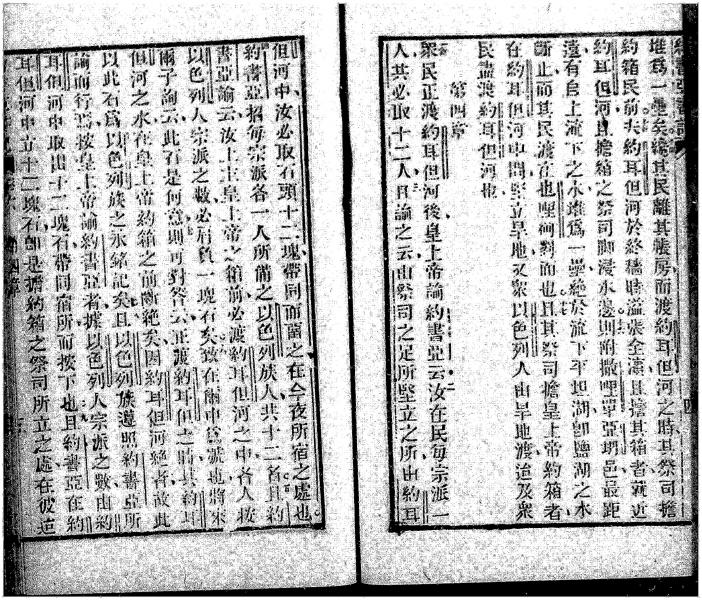 堆爲一壘矣緣其民離其帳房而渡約耳但河之時其祭司擔
約箱民前夫約耳但河於終穡時溢漲全瀛且擔其箱者就近
約耳但河且擔箱之祭司脚浸水邊則附撒哩單亞瑪邑最距
遠有自上流下之水堆爲一壘絕於流下平坦湖卽鹽湖之水
斷止而其民渡在也哩
而也且其祭司擔皇上帝約箱者
在約耳但河中間堅立旱地又衆以色列人由旱地渡迨及衆
民盡渡約耳但河也
第四章
衆民正渡約耳但河後皇上帝諭約書亞云汝在民每宗派一
人其必取十二人且諭之云由祭司之足所堅立之所由約耳
但河中汝必取石頭十二塊帶同而藺之在今夜所宿之處也
約書亞招每宗派各一人所備之以色列族人共十二名且約
書亞諭云汝上主皇上帝之箱前必渡約耳但河之中各人按
以色列人宗派之數必肩負一塊石矣致在爾中爲號也將來
爾子諭云此石是何意則可對答云正渡約耳但之時其約耳
但河之水在皇上帝約箱之前斷絕矣因約耳但河絕者故此
以此石爲以色列族之永銘記矣且以色列族遵照約書亞所
諭而行焉按皇上帝諭約書亞者據以色列人宗派之數由約
耳但河中取出十二塊石帶同宿所而按下也且約書亞在約
耳但河中立十二塊石卽是擔約箱之祭司所立之處在彼迨